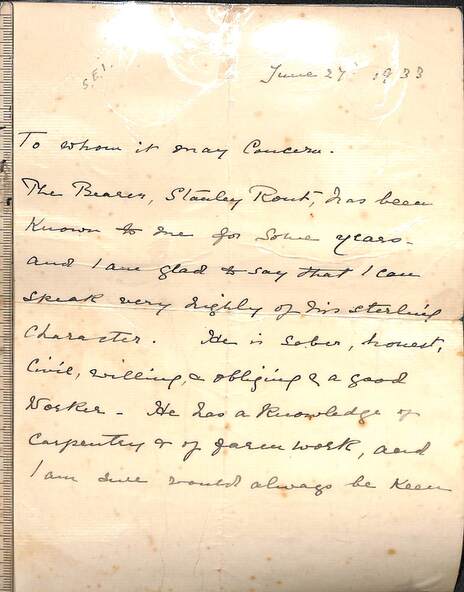 S.E.I.
June 27 1933
To whom it may Concern.
The Bearer, Stanley Rout, has been
Known to me for some years -
and I am glad to say that I can
speak very highly of his sterling
Character. He is sober, honest,
Civil, willing, & obliging & a good
Worker - He has a Knowledge of
Carpentry & of farm work, and
I am sure would always be Keen